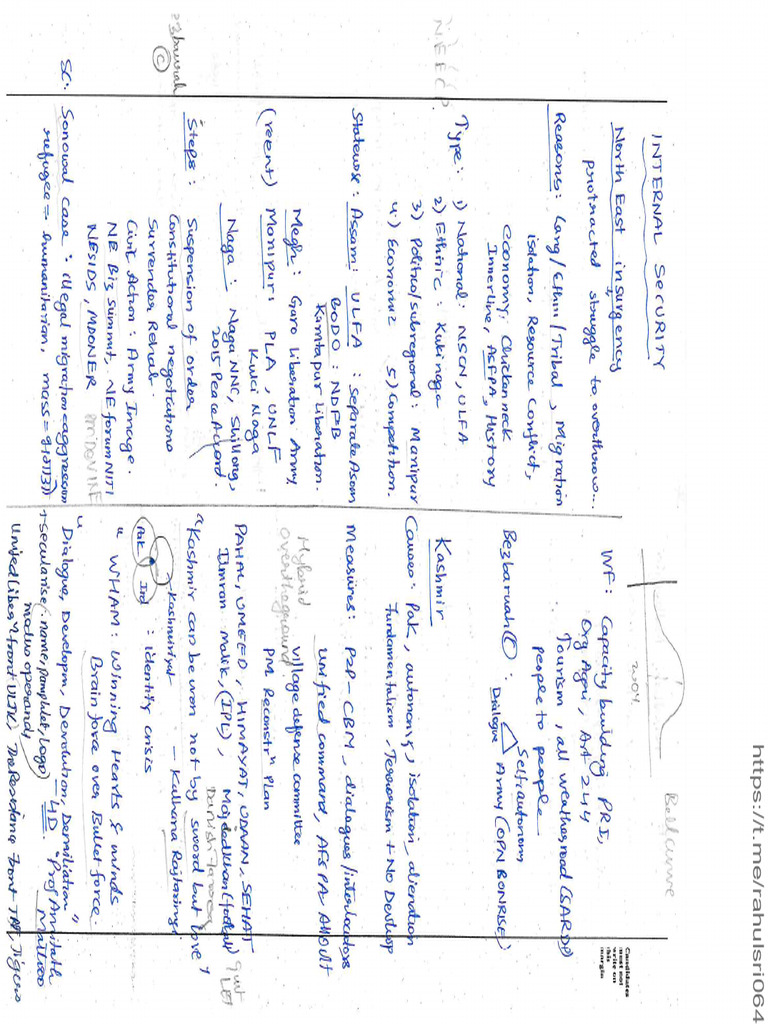 INTERNAL SECURITY
North East insurgency
protracted struggle to overthrow...
Reasons: Lang/Ethni/Tribal, Migration
isolation, Resource Conflict,
economy, Chickenneck
Innerline, ASFPA, History
Type: 1) National: NSCN, ULFA
2) Ethnic: Kuki naga
3) Politico/subregional: Manipur
4) Economic 5) Competition.
Statewise: Assam: ULFA : separate Asom
BODO: NDFB
Kamtapur Liberation.
Megh: Garo Liberation Army
(recent) Manipur: PLA, UNLF
Kuki Naga
Naga: Naga NNC, Shillong,
2015 Peace Accord.
Steps: Suspension of order
Constitutional negotiations
Surrender Rehab.
Civic Action: Army Image.
NE Biz Summit, NE forum NITI
NESIDS, MDONER PM DEVINE
SC. Sonowal case: illegal migration=aggression
refugee = humanitarian, mass =
NEEC
©
WF: Capacity building PRI,
Org Agri, Art 244
Tourism, all weather road (SARDP)
people to people
Bezbaruah ©: Self autonomy
Dialogue Army (OPN BONRISE)
Kashmir
Causes: Pak, autonomy, isolation, alienation
Fundamentalism, Terrorism + No Develop
Measures: P2P-CBM, dialogues/interlocutors
unified command, AFSPA
village defense committee
Hybrid
overtheground
PM Reconstrⁿ Plan
PAHAL, UMEED, HIMAYAT, UDAAN, SEHAT
Imran Malik, (IPL), Majid Khan (football) quit LET
"Kashmir can be won not by sword but love"
Kashmiriyat - Kalhana Rajtarangi
Pak Ind : identity crisis
" WHAM: Winning Hearts & minds
Brain force over Bullet force. "
" Dialogue, Developm, Devolution, Demilitation - 4D. "Prof Amitabh Mattoo
+ secularise (name, pamphlet, Logo)
modus operandi
United Libeⁿ front ULFK, The Resistance Front TRF, Tigers
2WO4
Bell curve
Candidates must not write on this margin
https://t.me/rahulsri064